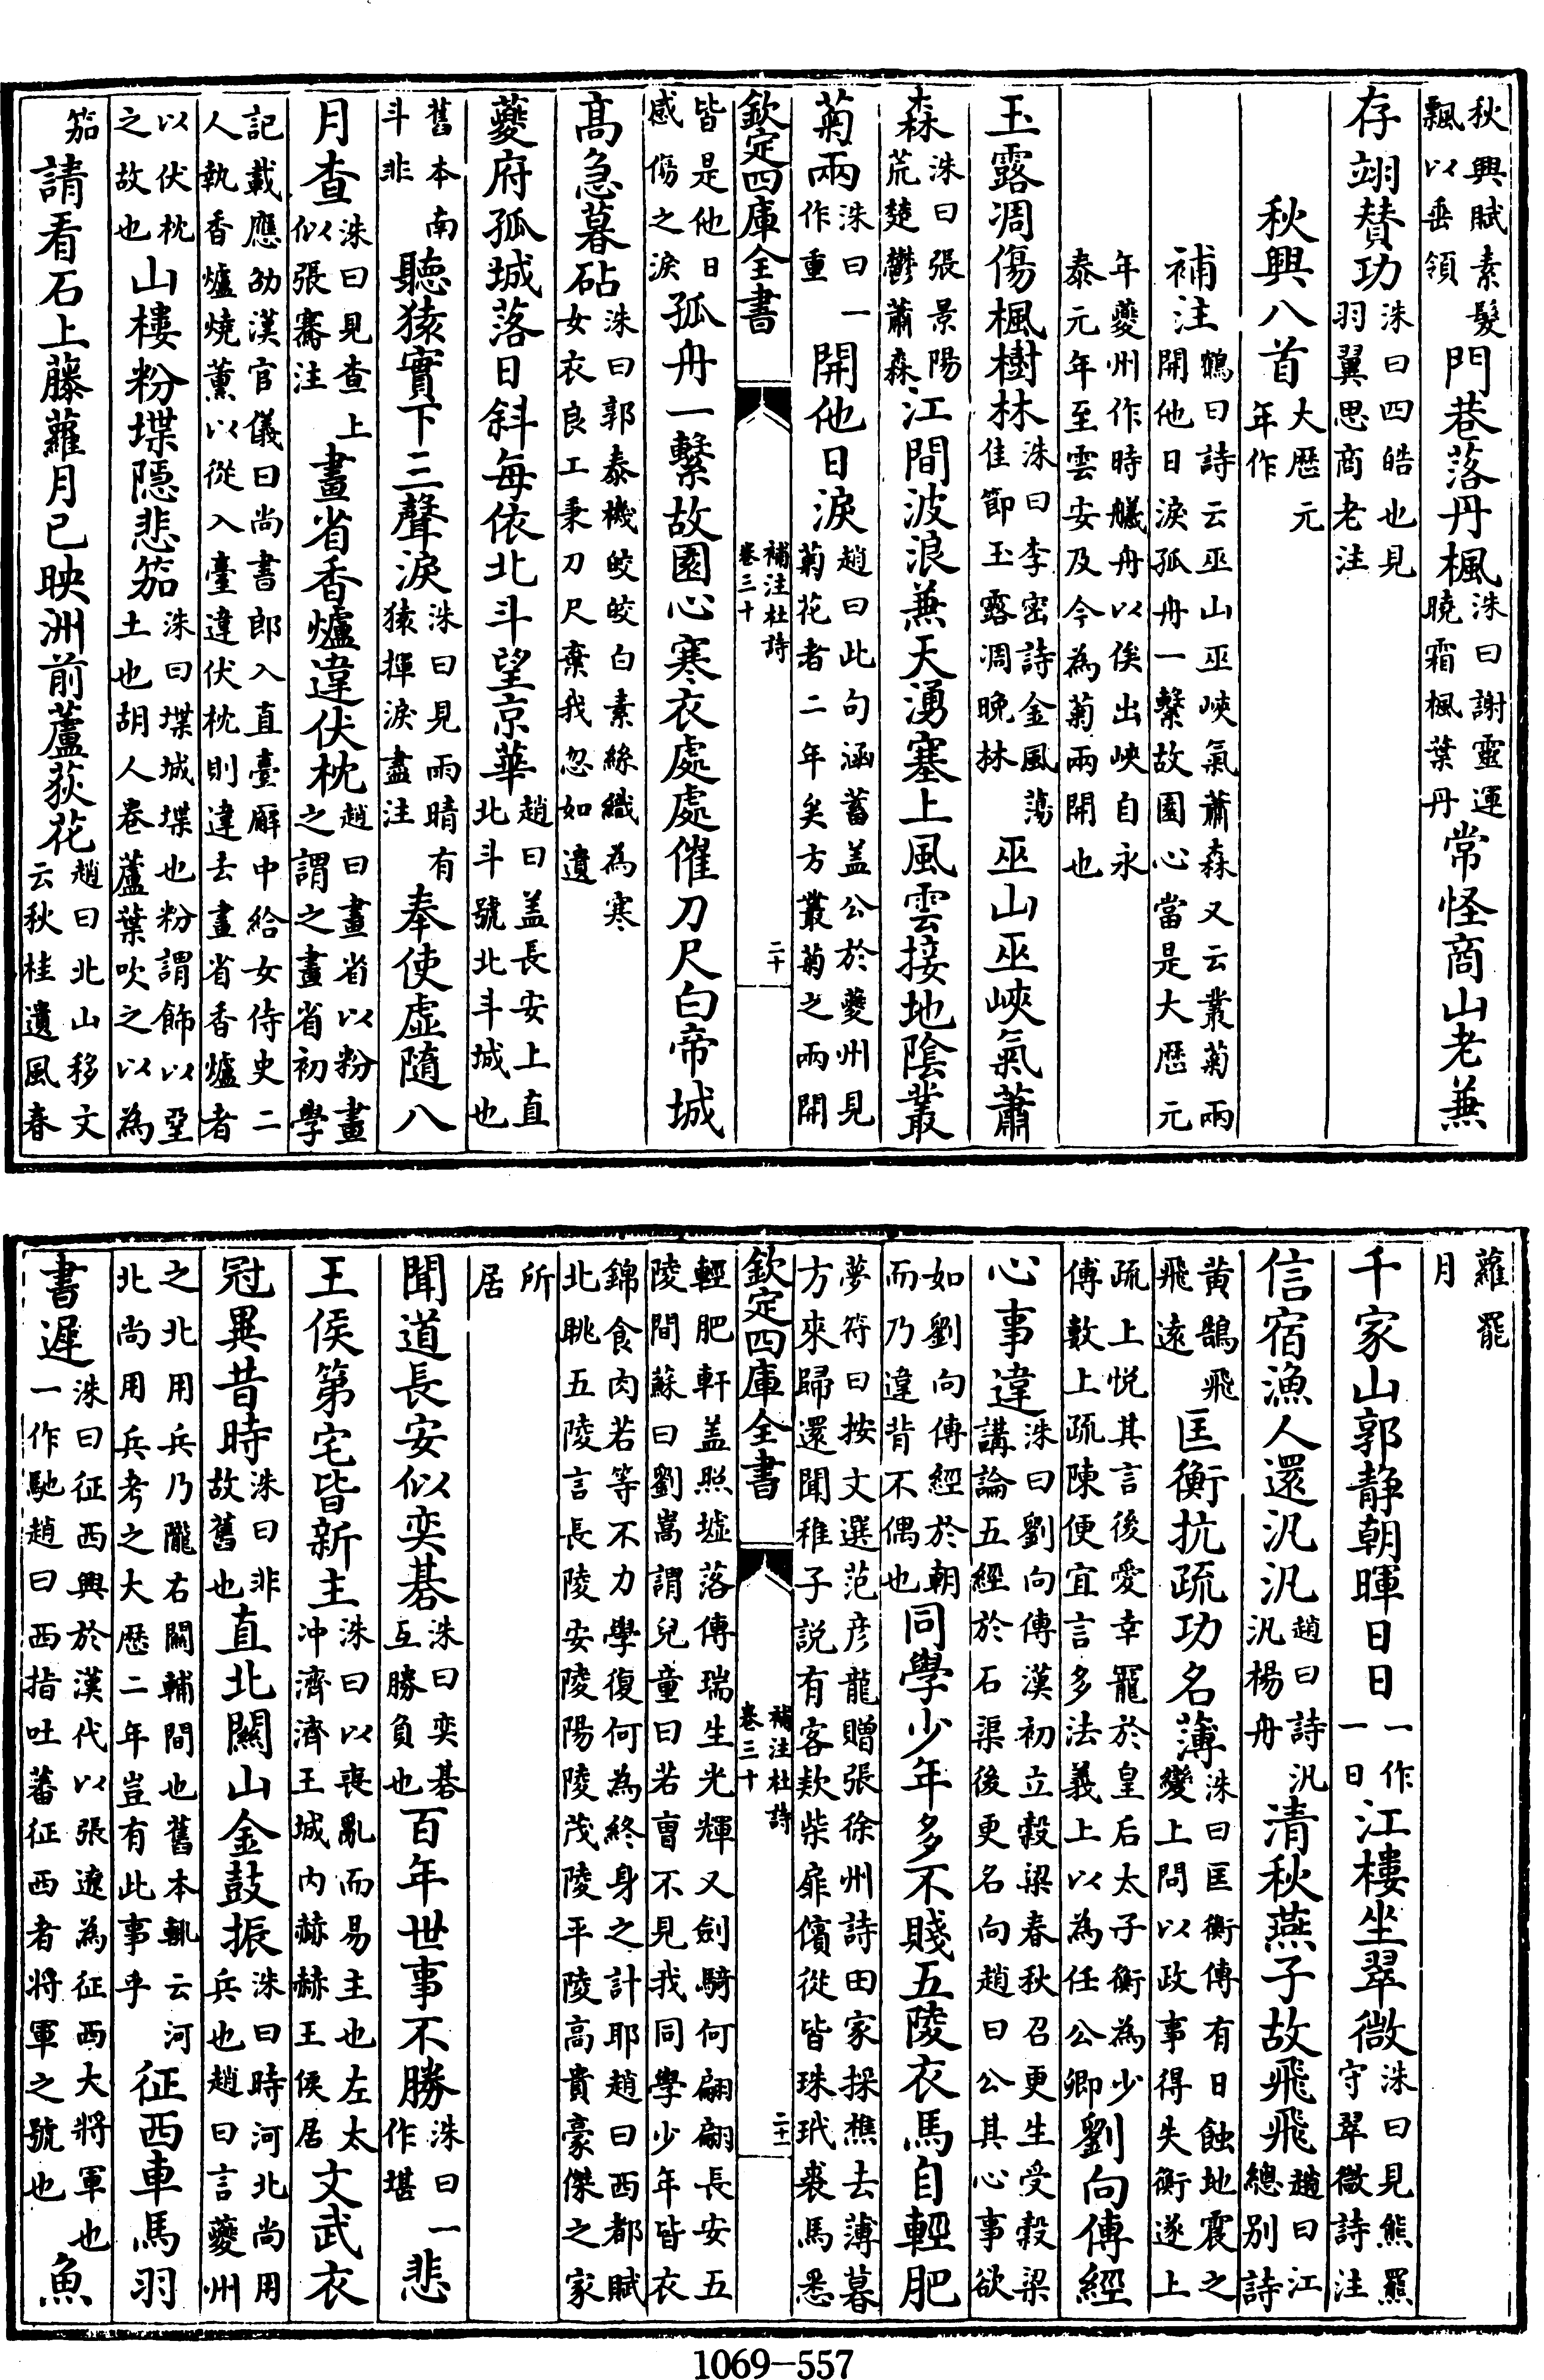 秋興賦素髮飄以垂領門巷落丹楓洙曰謝靈運曉霜楓葉丹常怪商山老兼
存翊贊功洙曰四皓也見羽翼思商老注
秋興八首大厯元年作
補注鶴曰詩云巫山巫峽氣蕭森又云叢菊兩開他日淚孤舟一繫故園心當是大厯元
年夔州作時艤舟以俟出峽自永泰元年至雲安及今為菊兩開也
玉露凋傷楓樹林洙曰李密詩金風蕩佳節玉露凋晚林巫山巫峽氣蕭
森洙曰張景陽荒楚鬱蕭森江間波浪兼天湧塞上風雲接地陰叢
菊兩洙曰一作重開他日淚趙曰此句涵蓄盖公於夔州見菊花者二年矣方叢菊之兩開
欽定四庫全書 補注杜詩 卷三十 二十
皆是他日感傷之淚孤舟一繫故園心寒衣處處催刀尺白帝城
高急暮砧洙曰郭泰機皎皎白素絲織為寒女衣良工秉刀尺棄我忽如遺
夔府孤城落日斜每依北斗望京華趙曰盖長安上直北斗號北斗城也
舊本南斗非聽猿實下三聲淚洙曰見雨晴有猿揮淚盡注奉使虛隨八
月查洙曰見查上似張騫注畫省香爐違伏枕趙曰畫省以粉畫之謂之畫省初學
記載應劭漢官儀曰尚書郎入直臺廨中給女侍史二人執香爐燒薫以從入臺違伏枕則違去畫省香爐者
以伏枕之故也山樓粉堞隱悲笳洙曰堞城堞也粉謂飾以堊土也胡人卷蘆葉吹之以為
笳請看石上藤蘿月已映洲前蘆荻花趙曰北山移文云秋桂遺風春
蘿罷月
千家山郭静朝暉日日一作一日江樓坐翠微洙曰見熊羆守翠微詩注
信宿漁人還汎汎趙曰詩汎汎楊舟清秋燕子故飛飛趙曰江總別詩
黃鵠飛飛遠匡衡抗疏功名薄洙曰匡衡傳有日蝕地震之變上問以政事得失衡遂上
疏上悦其言後愛幸寵於皇后太子衡為少傅數上疏陳便宜言多法義上以為任公卿劉向傳經
心事違洙曰劉向傳漢初立穀梁春秋召更生受穀梁講論五經於石渠後更名向趙曰公其心事欲
如劉向傳經於朝而乃違背不偶也同學少年多不賤五陵衣馬自輕肥
夢符曰按文選范彦龍贈張徐州詩田家採樵去薄暮方來歸還聞稚子説有客欵柴扉儐從皆珠玳裘馬悉
欽定四庫全書 補注杜詩 卷三十 二十一
輕肥軒盖照墟落傳瑞生光輝又劍騎何翩翩長安五陵間蘇曰劉嵩謂兒童曰若曹不見我同學少年皆衣
錦食肉若等不力學復何為終身之計耶趙曰西都賦北眺五陵言長陵安陵陽陵茂陵平陵高貴豪傑之家
所居
聞道長安似奕棊洙曰奕棊互勝負也百年世事不勝洙曰一作堪悲
王侯第宅皆新主洙曰以喪亂而易主也左太冲濟濟王城内赫赫王侯居文武衣
冠異昔時洙曰非故舊也直北關山金鼓振洙曰時河北尚用兵也趙曰言夔州
之北用兵乃隴右關輔間也舊本執云河北尚用兵考之大厯二年豈有此事乎征西車馬羽
書遲洙曰征西興於漢代以張遼為征西大將軍也一作馳趙曰西指吐蕃征西者將軍之號也魚
1069-557